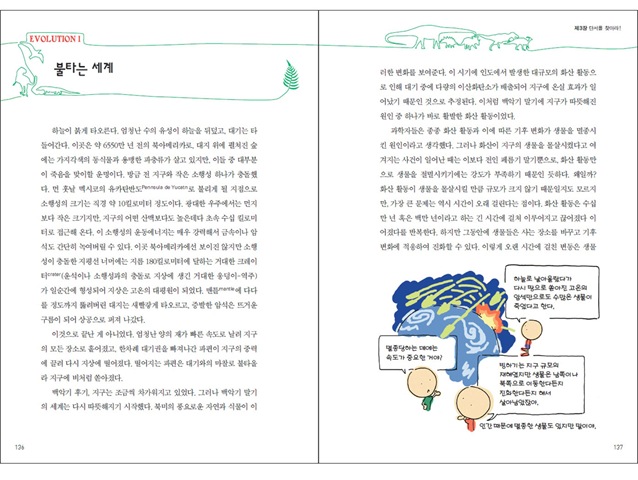 EVOLUTION 1
불타는 세계
하늘이 붉게 타오른다. 엄청난 수의 유성이 하늘을 뒤덮고, 대기는 타
들어간다. 이곳은 약 6550만 년 전의 북아메리카로, 대지 위에 펼쳐진 숲
에는 가지각색의 동식물과 용맹한 파충류가 살고 있지만, 이들 중 대부분
이 죽음을 맞이할 운명이다. 방금 전 지구와 작은 소행성 하나가 충돌했
다. 먼 훗날 멕시코의 유카탄반도Peninsula de Yucatn로 불리게 될 지점으로
소행성의 크기는 직경 약 10킬로미터 정도이다. 광대한 우주에서는 먼지
보다 작은 크기지만, 지구의 어떤 산맥보다도 높은데다 초속 수십 킬로미
터로 접근해 온다. 이 소행성의 운동에너지는 매우 강력해서 금속이나 암
석도 간단히 녹여버릴 수 있다. 이곳 북아메리카에선 보이진 않지만 소행
성이 충돌한 지평선 너머에는 지름 180킬로미터에 달하는 거대한 크레이
터crater(운석이나 소행성과의 충돌로 지상에 생긴 거대한 웅덩이-역주)
가 일순간에 형성되어 지상은 고온의 대평원이 되었다. 맨틀mantle에 다다
를 정도까지 뚫려버린 대지는 새빨갛게 타오르고, 증발한 암석은 뜨거운
구름이 되어 상공으로 퍼져 나갔다.
이것으로 끝난 게 아니었다. 엄청난 양의 재가 빠른 속도로 날려 지구
의 모든 장소로 흩어졌고, 한차례 대기권을 빠져나간 파편이 지구의 중력
에 끌려 다시 지상에 떨어졌다. 떨어지는 파편은 대기와의 마찰로 불타올
라 지구에 비처럼 쏟아졌다.
백악기 후기, 지구는 조금씩 차가워지고 있었다. 그러나 백악기 말기
의 세계는 다시 따뜻해지기 시작했다. 북미의 풍요로운 자연과 식물이 이
126
제3장 단서를 찾아라!
러한 변화를 보여준다. 이 시기에 인도에서 발생한 대규모의 화산 활동으
로 인해 대기 중에 다량의 이산화탄소가 배출되어 지구에 온실 효과가 일
어났기 때문인 것으로 추정된다. 이처럼 백악기 말기에 지구가 따뜻해진
원인 중 하나가 바로 활발한 화산 활동이었다.
과학자들은 종종 화산 활동과 이에 따른 기후 변화가 생물을 멸종시
킨 원인이라고 생각했다. 그러나 화산이 지구의 생물을 몰살시켰다고 여
겨지는 사건이 일어난 때는 이보다 전인 페름기 말기뿐으로, 화산 활동만
으로 생물을 절멸시키기에는 강도가 부족하기 때문인 듯하다. 왜일까?
화산 활동이 생물을 몰살시킬 만큼 규모가 크지 않기 때문일지도 모르지
만, 가장 큰 문제는 역시 시간이 오래 걸린다는 점이다. 화산 활동은 수십
만 년 혹은 백만 년이라고 하는 긴 시간에 걸쳐 이루어지고 끊어졌다 이
어졌다를 반복한다. 하지만 그동안에 생물들은 사는 장소를 바꾸고 기후
변화에 적응하여 진화할 수 있다. 이렇게 오랜 시간에 걸친 변동은 생물
하늘로 날아올랐다가
다시 땅으로 쏟아진 고온의
암석만으로도 수많은 생물이
죽었다고 한다.
멸종당하는 데에는
속도가 중요한 거야!
빙하기는 지구 규모의
재해였지만 생물은 남쪽이나
북쪽으로 이동한다든지
진화한다든지 해서
살아남았잖아.
인간 때문에 멸종한 생물도 있지만 말이야.
127